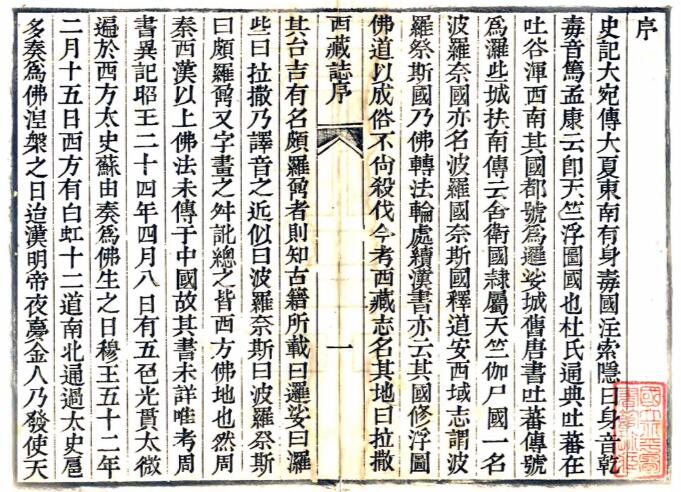 序
史記大宛傳大夏東南有身毒國注索隱曰身音乾
毒音篤孟康云卽天竺浮圖國也杜氏通典吐蕃在
吐谷渾西南其國都號爲邏娑城舊唐書吐蕃傳號
爲邏些城扶南傳云舍衛國隸屬天竺伽尸國一名
波羅奈國亦名波羅國奈斯國釋道安西域志謂波
羅祭斯國乃佛轉法輪處續漢書亦云其國修浮圖
佛道以成俗不尙殺伐今考西藏志名其地曰拉撒
西藏誌序 一
其台吉有名頗羅鼐者則知古籍所載曰邏娑曰邏
些曰拉撒乃譯音之近似曰波羅奈斯曰波羅祭斯
曰頗羅鼐又字畫之舛訛總之皆西方佛地也然周
秦西漢以上佛法未傳于中國故其書未詳唯考周
書異記昭王二十四年四月八日有五色光貫太微
遍於西方太史蘇由奏爲佛生之日穆王五十二年
二月十五日西方有白虹十二道南北通過太史扈
多奏爲佛涅槃之日迨漢明帝夜夢金人乃發使天